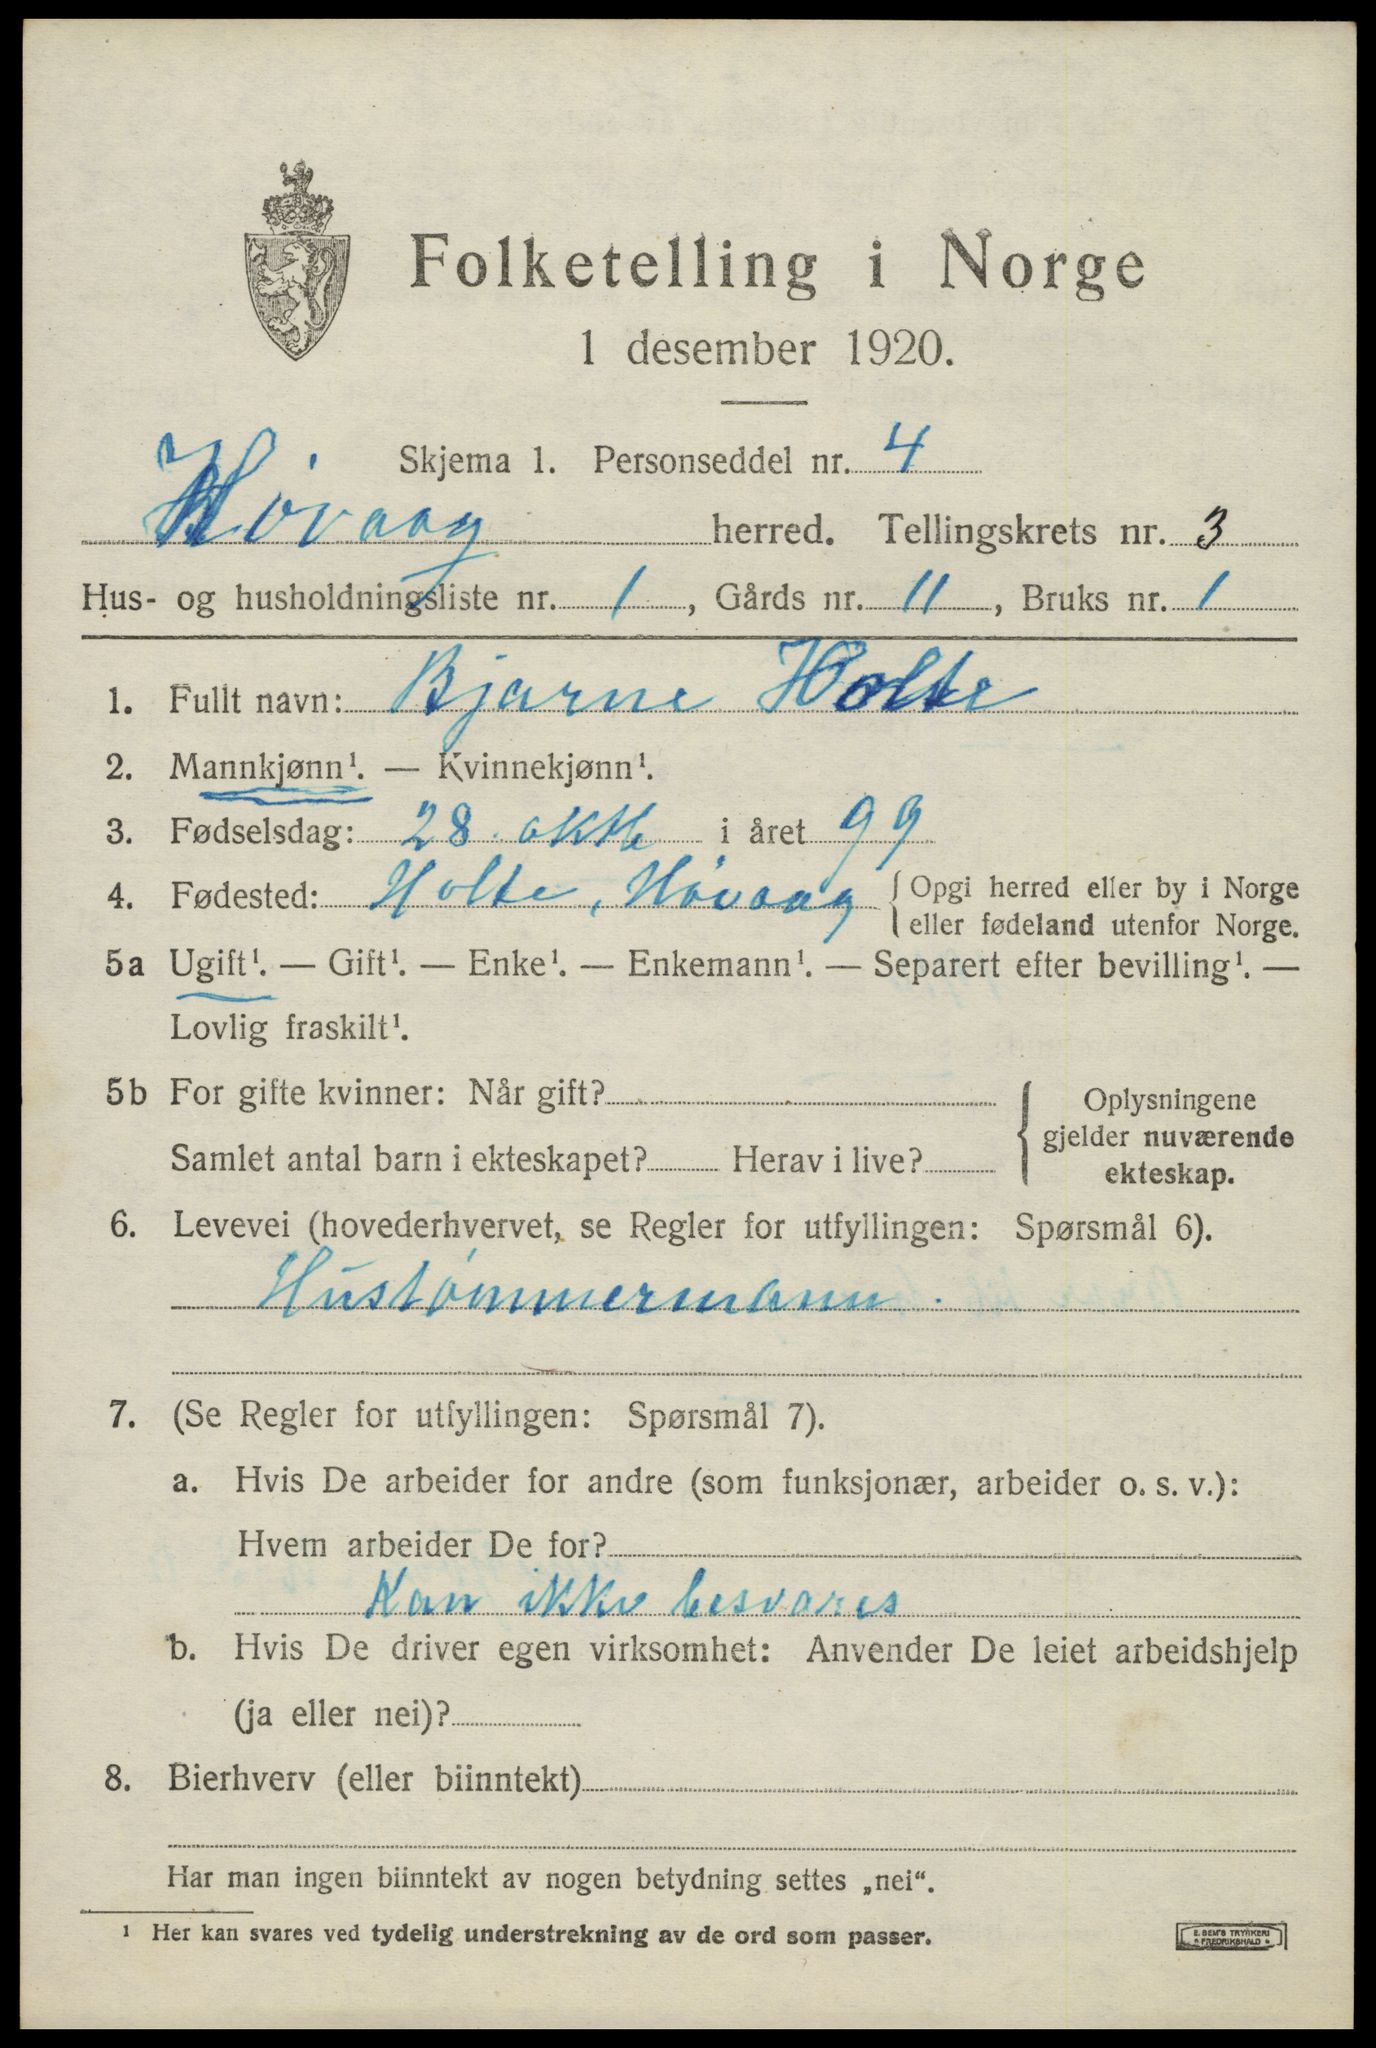 Folketelling i Norge
1 desember 1920.
Skjema 1. Personseddel nr. 4
Høvaag herred. Tellingskrets nr. 3
Hus- og husholdningsliste nr. 1, Gårds nr. 11, Bruks nr. 1
1. Fullt navn: Bjarne Holte
2. Mannkjønn¹. — Kvinnekjønn¹.
3. Fødselsdag: 28 oktb i året 99
4. Fødested: Holte, Høvaag { Opgi herred eller by i Norge
eller fødeland utenfor Norge.
5a Ugift¹. — Gift¹. — Enke¹. — Enkemann¹. — Separert efter bevilling¹. —
Lovlig fraskilt¹.
5b For gifte kvinner: Når gift?
Samlet antal barn i ekteskapet? Herav i live?
{ Oplysningene
gjelder nuværende
ekteskap.
6. Levevei (hovederhvervet, se Regler for utfyllingen: Spørsmål 6).
Hustømmermann.
7. (Se Regler for utfyllingen: Spørsmål 7).
a. Hvis De arbeider for andre (som funksjonær, arbeider o. s. v.):
Hvem arbeider De for?
Kan ikke besvares
b. Hvis De driver egen virksomhet: Anvender De leiet arbeidshjelp
(ja eller nei)?
8. Bierhverv (eller biinntekt)
Har man ingen biinntekt av nogen betydning settes „nei“.
¹ Her kan svares ved tydelig understrekning av de ord som passer.
E. SEM'S TRYKKERI
FREDRIKSHALD